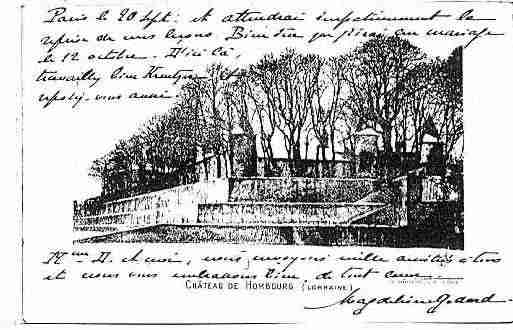 Paris le 20 Sept: et attendrai impatiemment la
reprise de mes leçons Bien sûr que j'irai au mariage
le 12 octobre. D'ici là
travaillez bien Kreutzer et
reposez-vous aussi.
Mme D. et moi, vous envoyons mille amitiés à tous
et nous vous embrassons bien de tout cœur.
CHÂTEAU DE HOMBOURG (LORRAINE)
Magdeleine